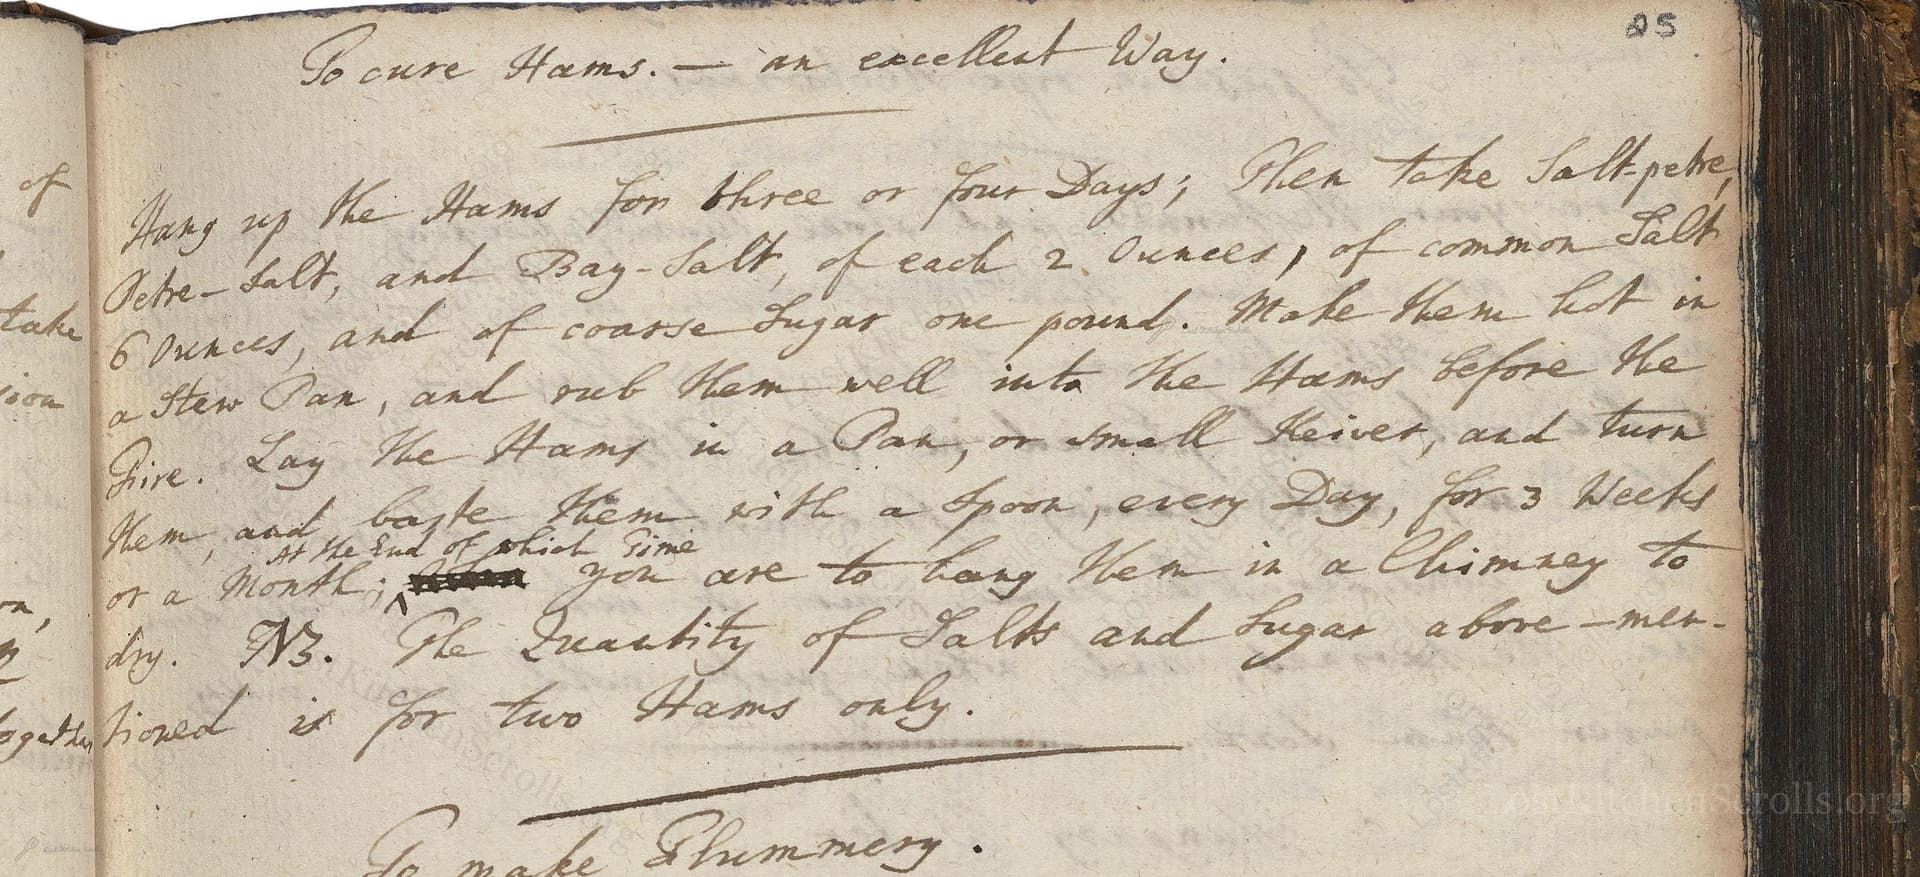 85
To cure Hams. — an excellent Way.
Hang up the Hams for three or four Days; Then take Salt-petre,
Petre-Salt, and Bay-Salt, of each 2 Ounces, of common Salt
6 Ounces, and of coarse Sugar one pound. Make them hot in
a Stew Pan, and rub them well into the Hams before the
Fire. Lay the Hams in a Pan, or small Keiver, and turn
them, and baste them with a Spoon, every Day, for 3 Weeks
At the End of which Time
or a Month; you are to hang them in a Chimney to
dry. NB. The Quantity of Salts and Sugar above-men-
tioned is for two Hams only.
To make Flummery.
of
take
on,
together
LostKitchenScrolls.org